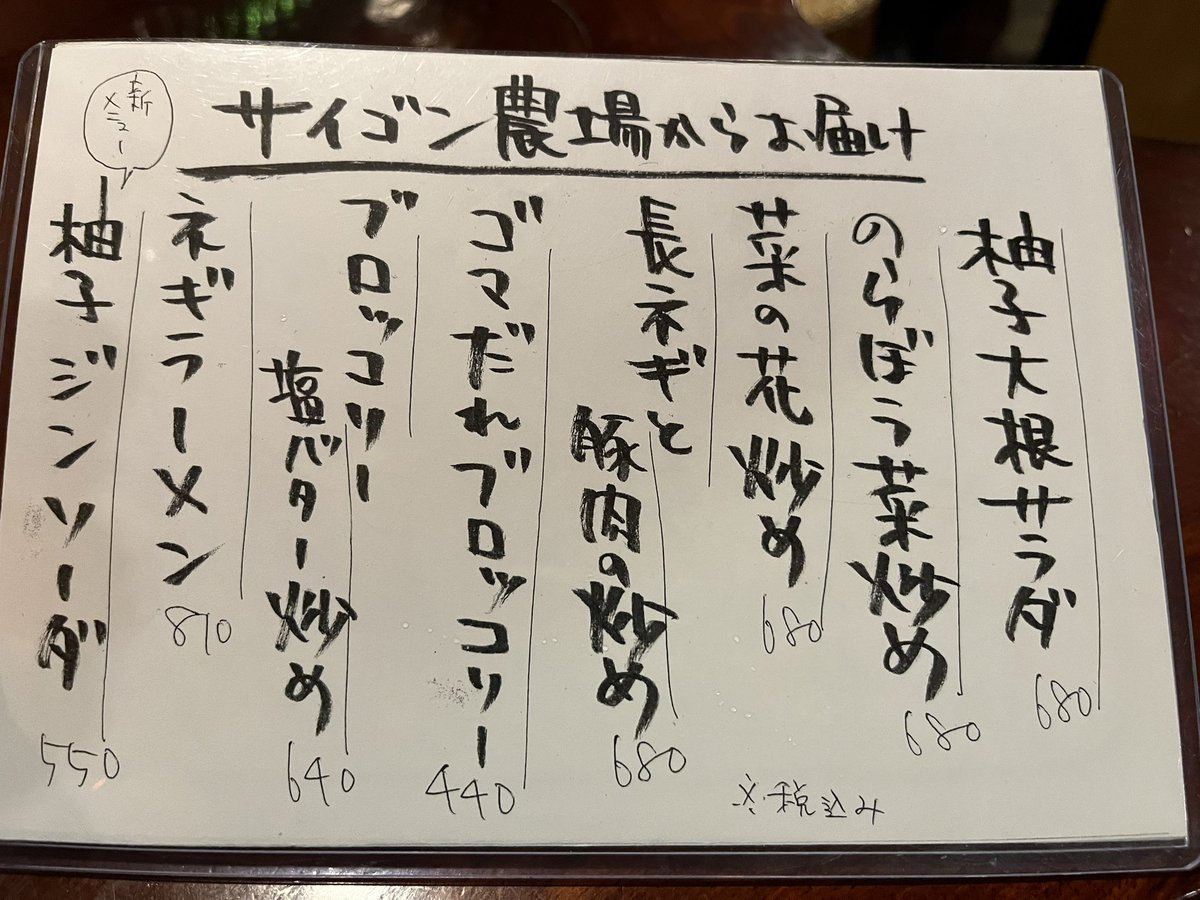 サイゴン農場からお届け
柚子大根サラダ
680
のらぼう菜炒め
680
菜の花炒め
680
長ネギと
豚肉の炒め
680
ゴマだれブロッコリー
440
ブロッコリー
塩バター炒め
640
ネギラーメン
810
新
メニュー
柚子ジンソーダ
550
※税込み